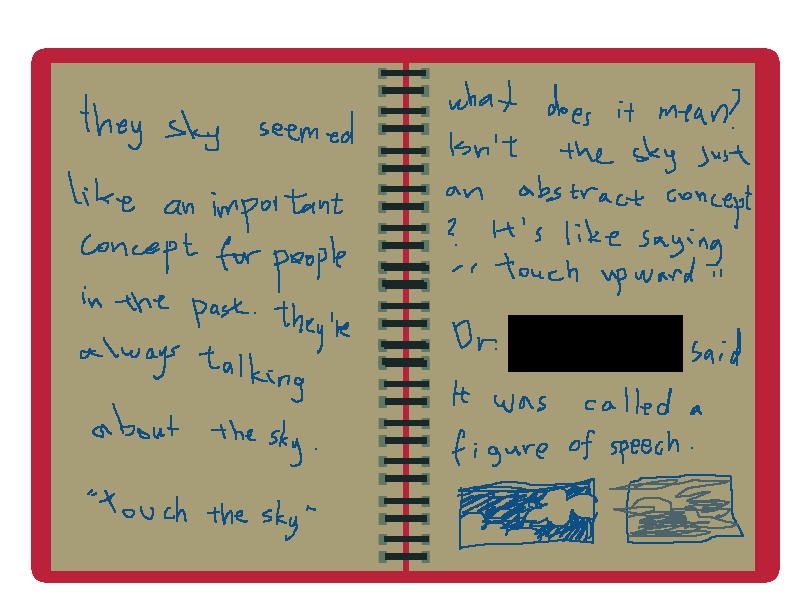 they sky seemed
like an important
concept for people
in the past. they're
always talking
about the sky.
"Touch the sky"
what does it mean?
Isn't the sky just
an abstract concept
? It's like saying
"touch upward"
Dr. said
It was called a
figure of speech.